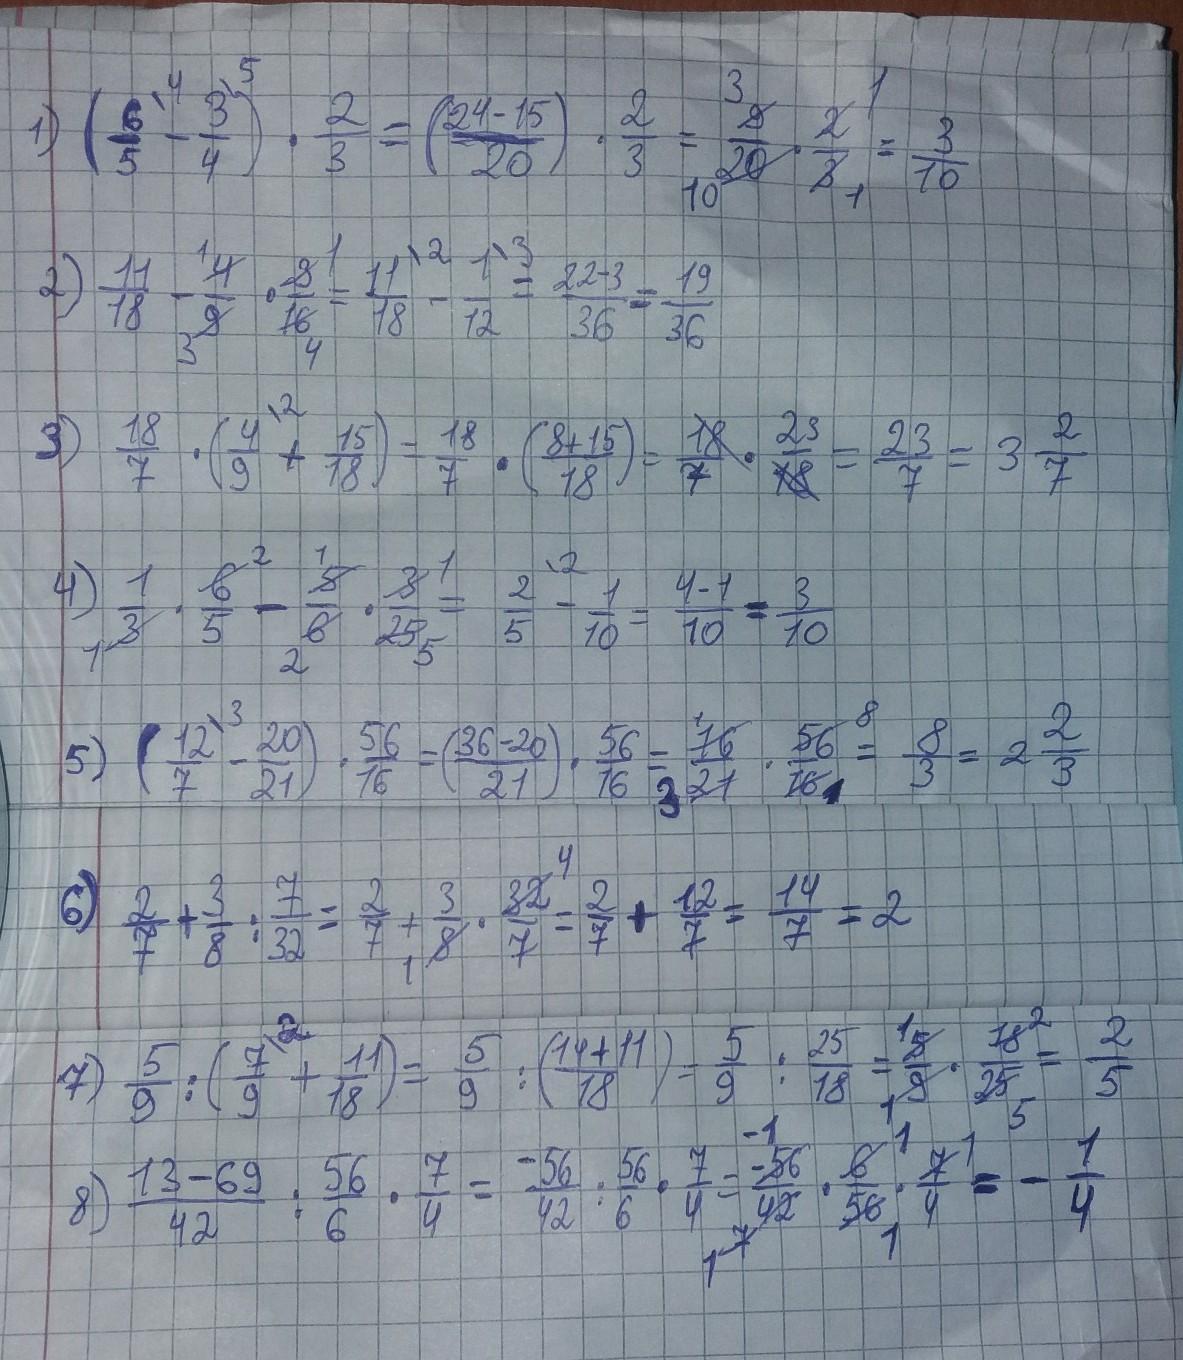 1) (6/5 \4 - 3/4 \5) · 2/3 = ((24-15)/20) · 2/3 = 3 9/20 10 · 2/3 1 1 = 3/10
2) 11/18 - 1 4/9 3 · 3/16 1 4 = 11/18 \2 - 1/12 \3 = (22-3)/36 = 19/36
3) 18/7 · (4/9 \2 + 15/18) = 18/7 · ((8+15)/18) = 18/7 · 23/18 = 23/7 = 3 2/7
4) 1/3 1 · 6/5 2 - 1 5/6 2 · 3/25 1 5 = 2/5 \2 - 1/10 = (4-1)/10 = 3/10
5) (12/7 \3 - 20/21) · 56/16 = ((36-20)/21) · 56/16 = 1 16/21 3 · 56/16 8 1 = 8/3 = 2 2/3
6) 2/7 + 3/8 : 7/32 = 2/7 + 3/8 1 · 32/7 4 = 2/7 + 12/7 = 14/7 = 2
7) 5/9 : (7/9 \2 + 11/18) = 5/9 : ((14+11)/18) = 5/9 : 25/18 = 1 5/9 1 · 18/25 2 5 = 2/5
8) (13-69)/42 : 56/6 · 7/4 = -56/42 : 56/6 · 7/4 = -1 -56/42 7 1 · 6/56 1 1 · 7/4 1 = - 1/4